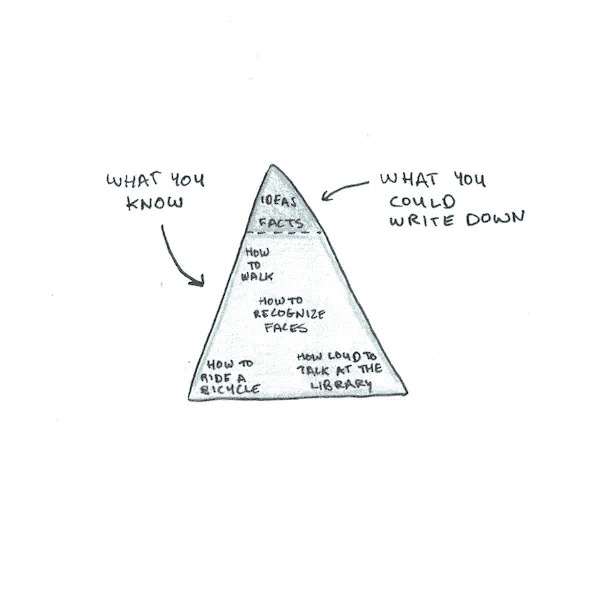 WHAT YOU
KNOW
WHAT YOU
COULD
WRITE DOWN
IDEAS
FACTS
HOW
TO
WALK
HOW TO
RECOGNIZE
FACES
HOW TO
RIDE A
BICYCLE
HOW LOUD TO
TALK AT THE
LIBRARY